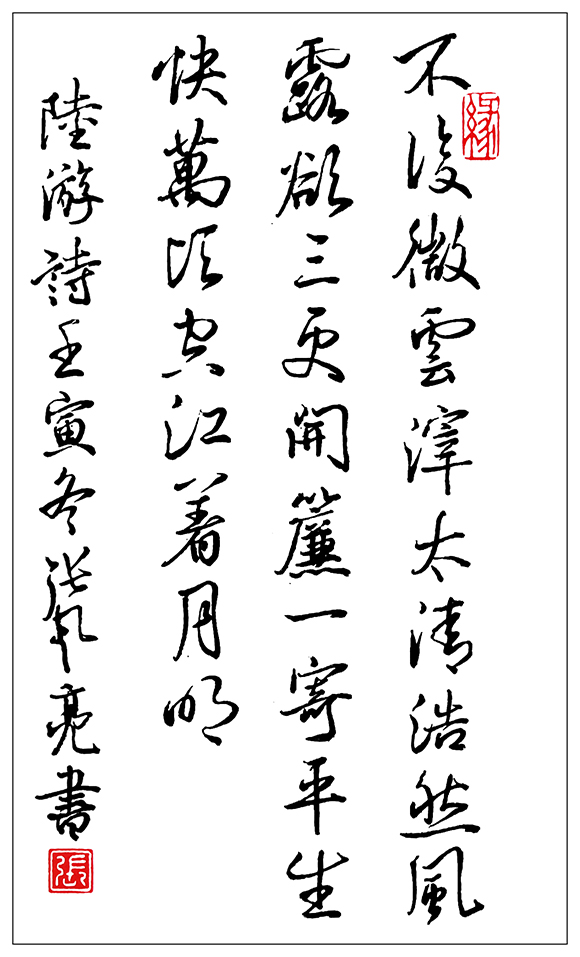 緣
不復微雲滓太清浩然風
露欲三更開簾一寄平生
快萬頃空江着月明
陸游詩壬寅冬張亮書
張